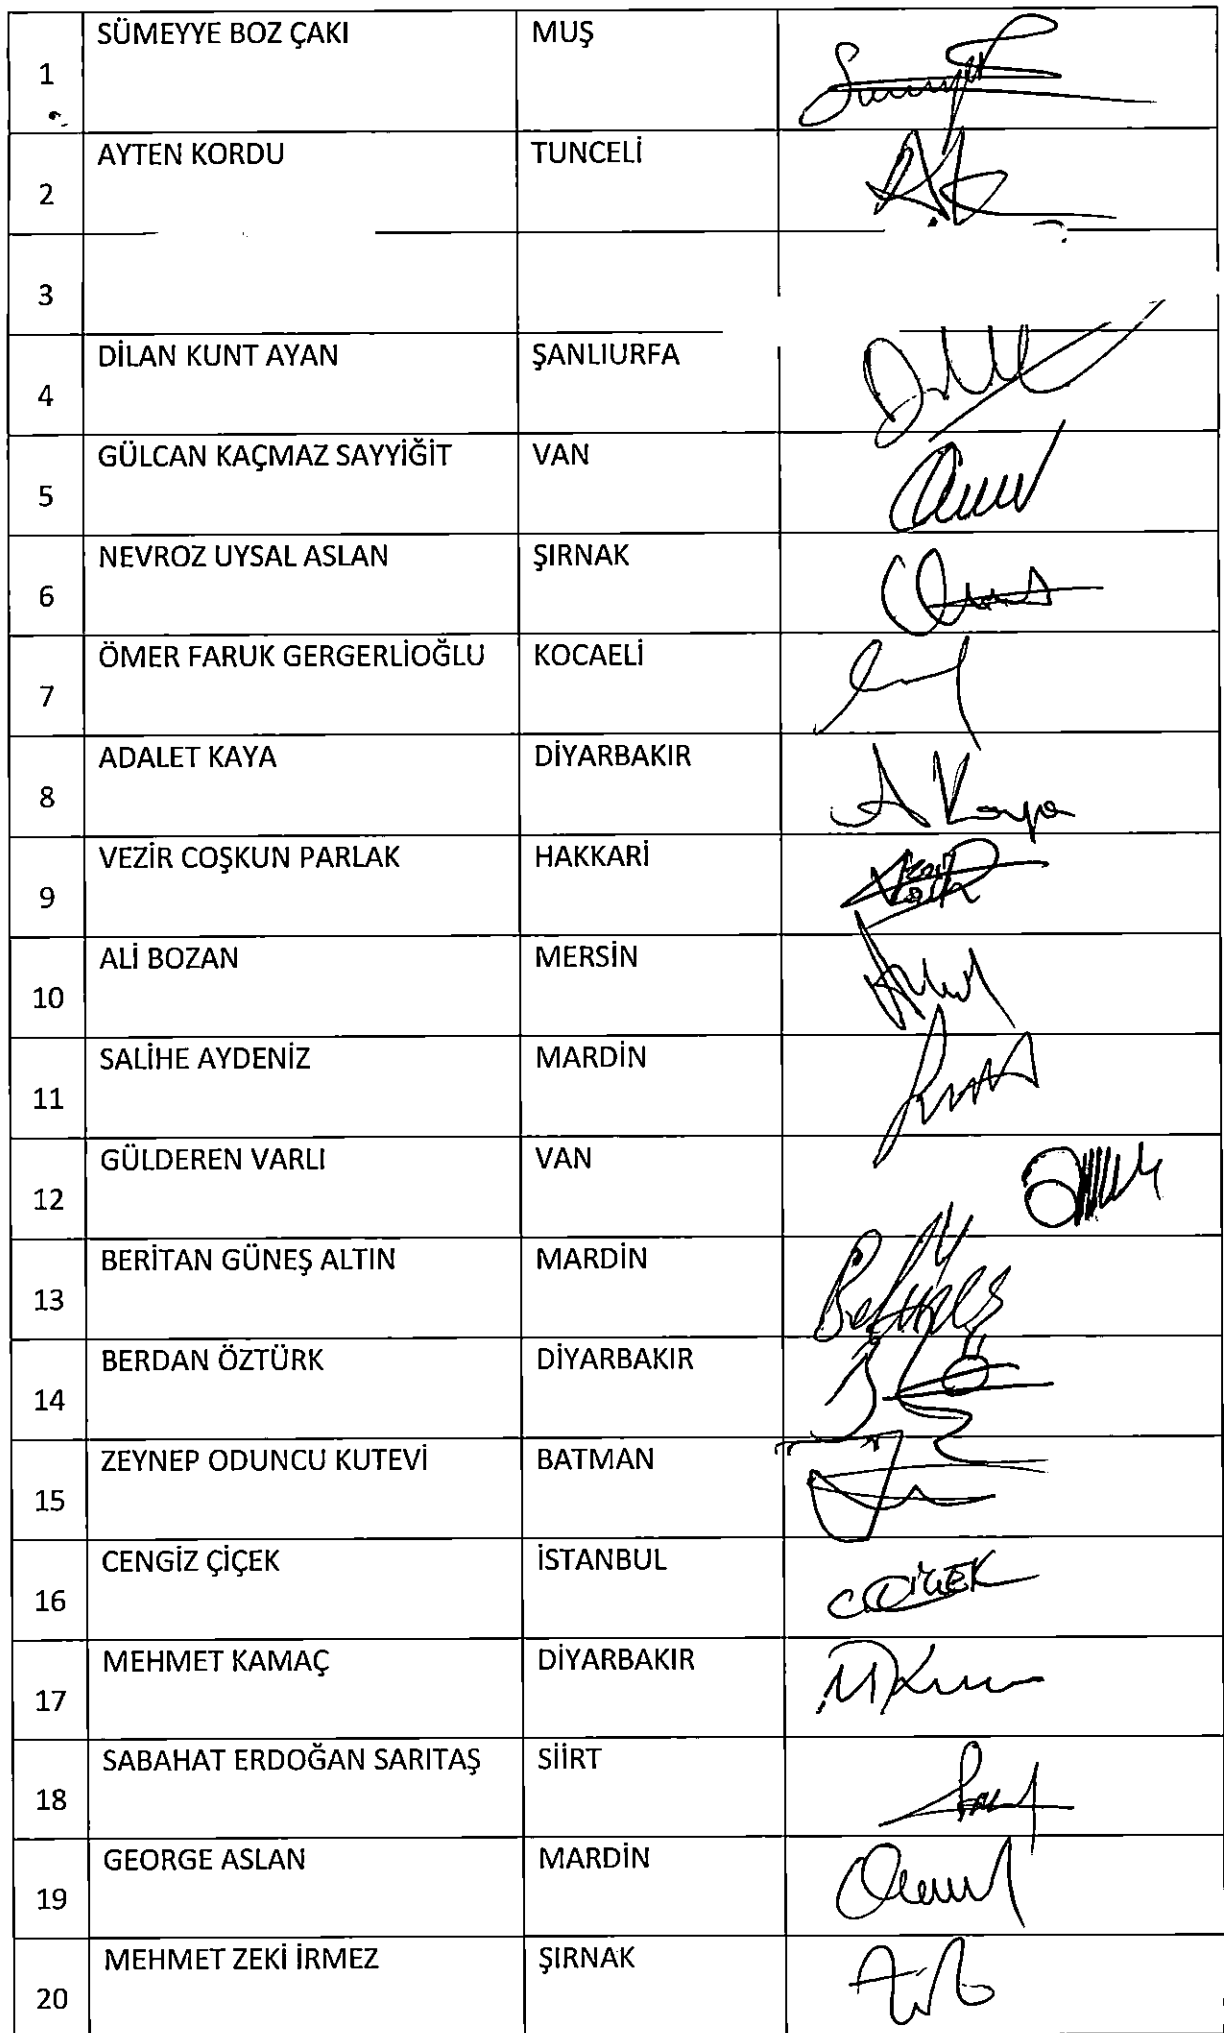 1 SÜMEYYE BOZ ÇAKI MUŞ
2 AYTEN KORDU TUNCELİ
3
4 DİLAN KUNT AYAN ŞANLIURFA
5 GÜLCAN KAÇMAZ SAYYİĞİT VAN
6 NEVROZ UYSAL ASLAN ŞIRNAK
7 ÖMER FARUK GERGERLİOĞLU KOCAELİ
8 ADALET KAYA DİYARBAKIR A Kaya
9 VEZİR COŞKUN PARLAK HAKKARİ
10 ALİ BOZAN MERSİN
11 SALİHE AYDENİZ MARDİN
12 GÜLDEREN VARLI VAN
13 BERİTAN GÜNEŞ ALTIN MARDİN
14 BERDAN ÖZTÜRK DİYARBAKIR
15 ZEYNEP ODUNCU KUTEVİ BATMAN
16 CENGİZ ÇİÇEK İSTANBUL
17 MEHMET KAMAÇ DİYARBAKIR
18 SABAHAT ERDOĞAN SARITAŞ SİİRT
19 GEORGE ASLAN MARDİN
20 MEHMET ZEKİ İRMEZ ŞIRNAK